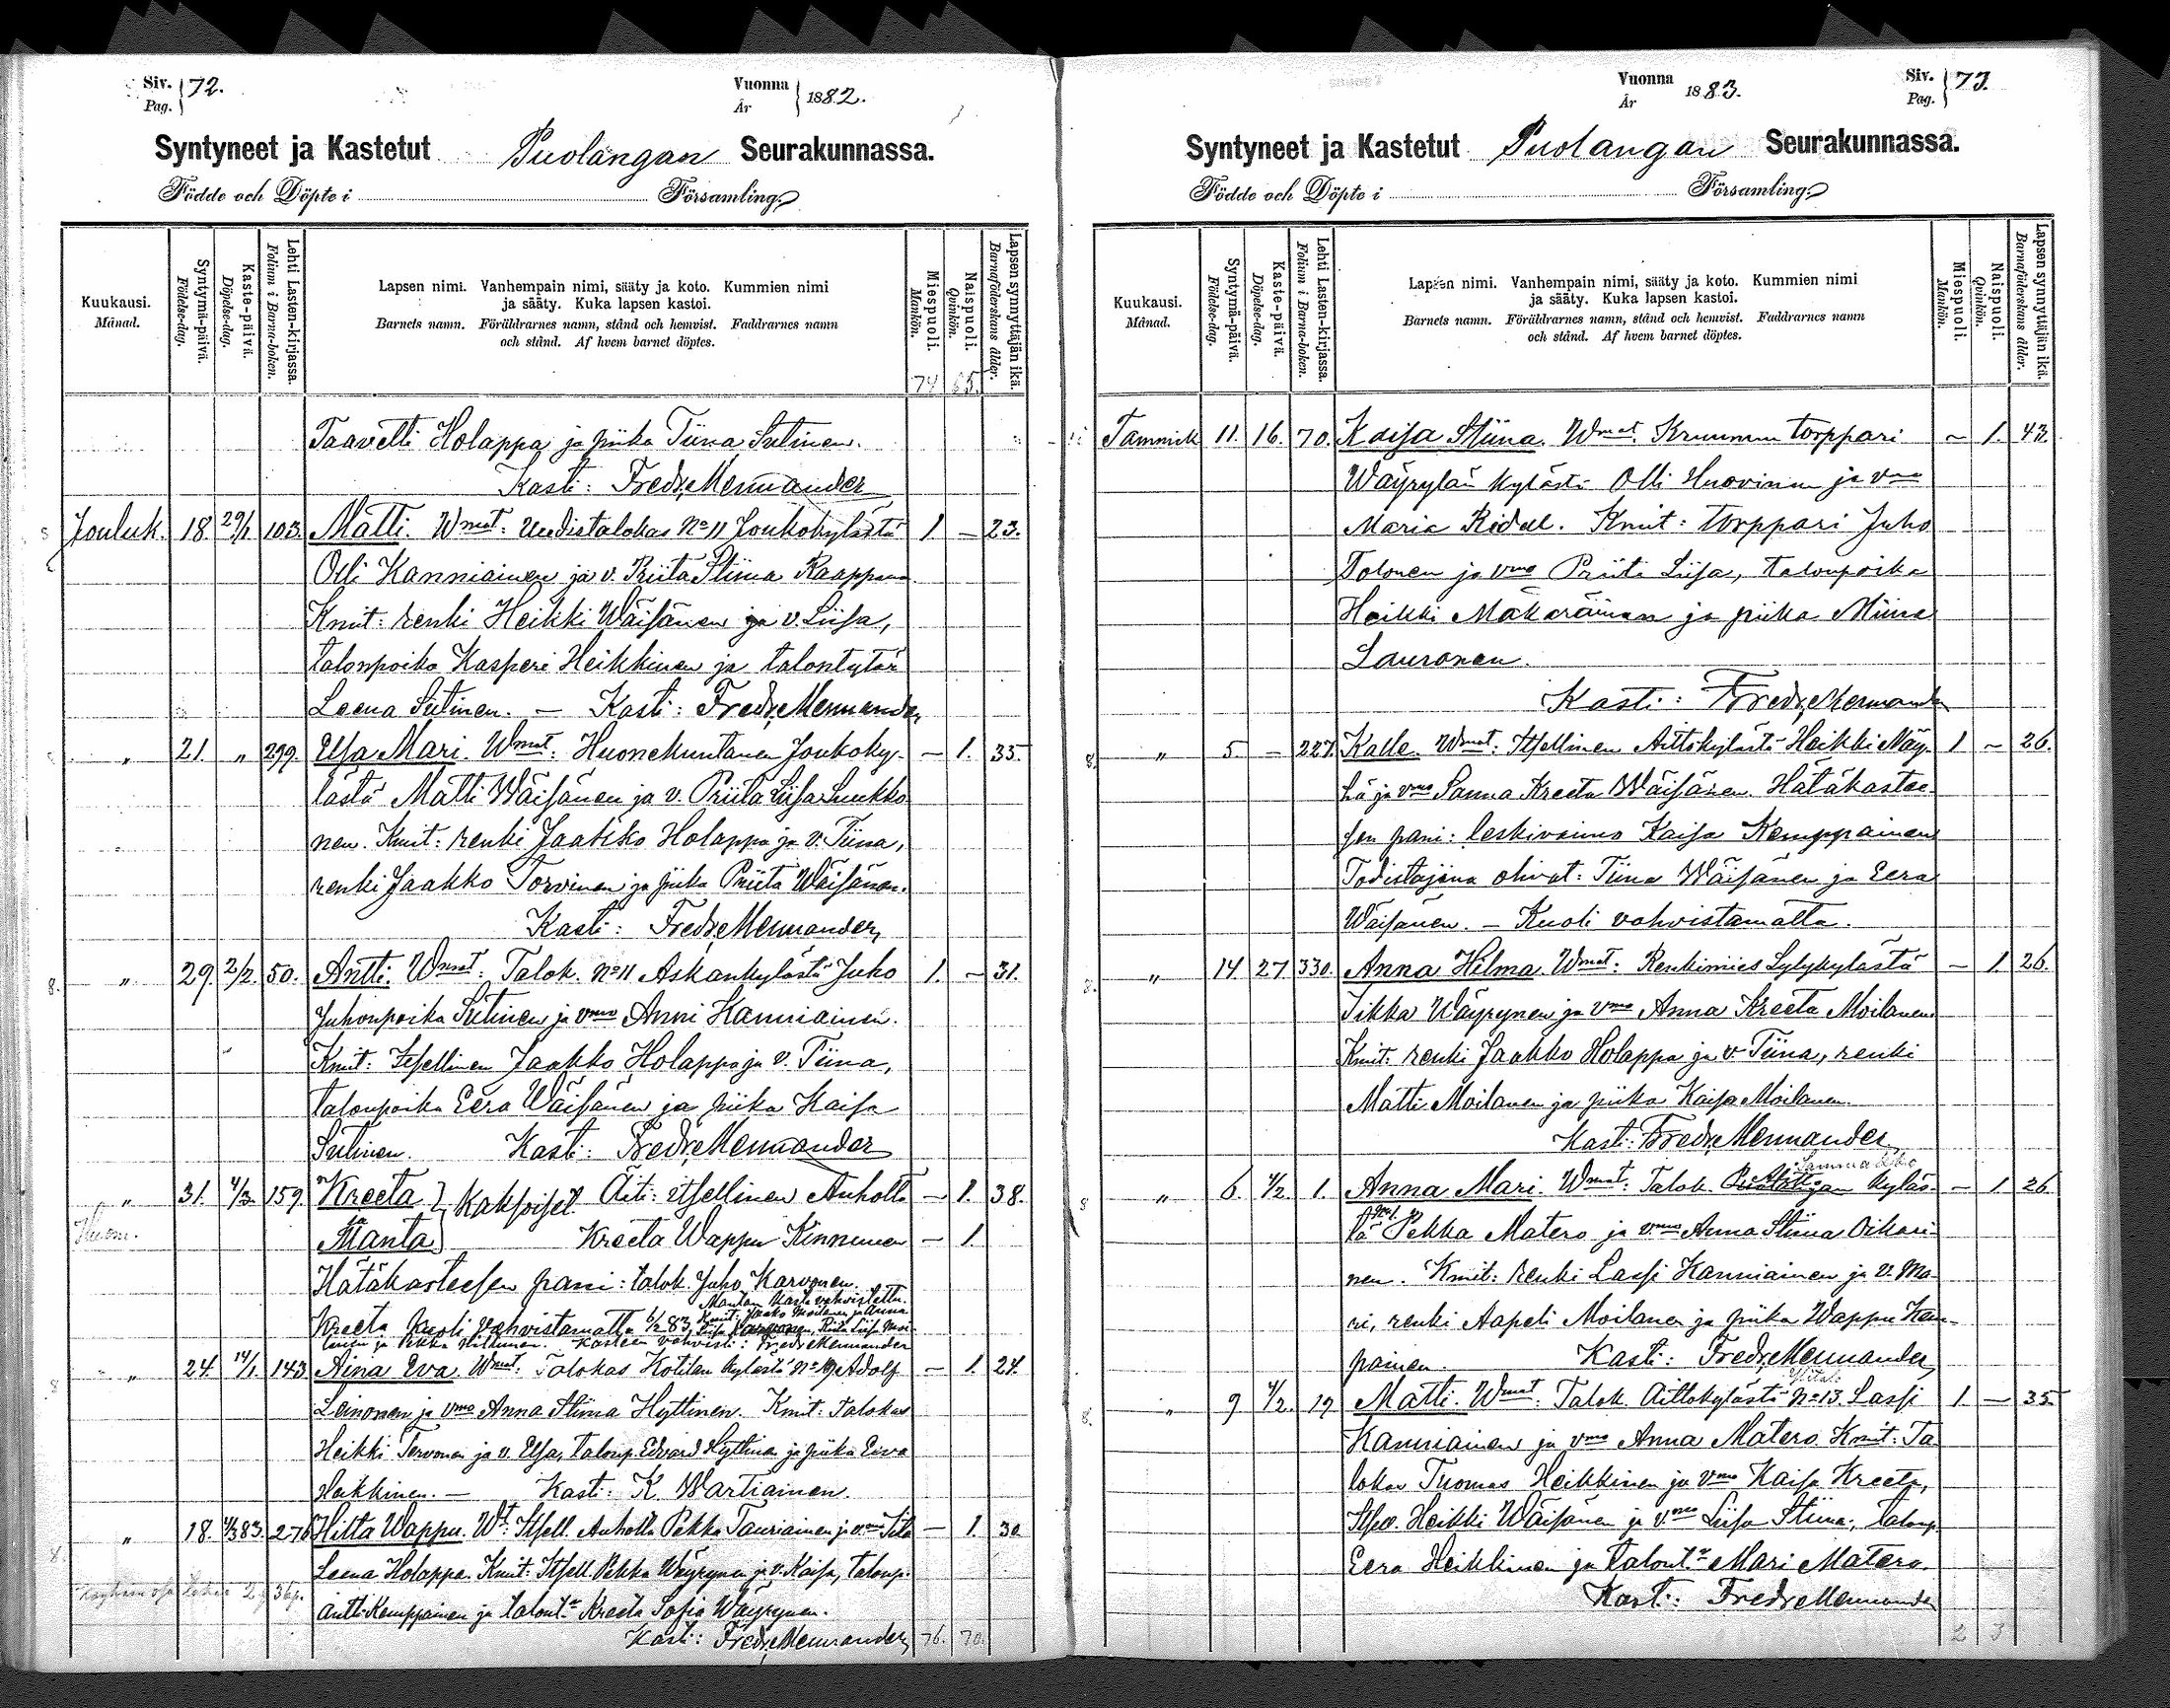 Siv. Pag. 72. Vuonna År 1882.
Syntyneet ja Kastetut Puolangan Seurakunnassa.
Födde och Döpte i Församling.
Kuukausi. Månad.
Syntymä-päivä. Födelse-dag.
Kaste-päivä. Döpelse-dag.
Lehti Lasten-kirjassa. Folium i Barna-boken.
Lapsen nimi. Vanhempain nimi, sääty ja koto. Kummien nimi
ja sääty. Kuka lapsen kastoi.
Barnets namn. Föräldrarnes namn, stånd och hemvist. Faddrarnes namn
och stånd. Af hvem barnet döptes.
Miespuoli. Mankön.
Naispuoli. Qvinkön.
Lapsen synnyttäjän ikä. Barnaföderskans ålder.
74 65.
Taavetti Holappa ja piika Tiina Sutinen.
Kasti: Fredr. Mennander
Jouluk. 18. 29/1 103. Matti. Wmat: Uudistalokas No 11 Joukokylästä 1 – 23.
Olli Kanniainen ja v. Priita Stiina Raappana
Kmit: renki Heikki Wäisänen ja v. Liisa,
talonpoika Kasperi Heikkinen ja talontytär
Leena Sutinen. – Kasti: Fredr. Mennander
" 21. " 299. Elsa Mari. Wmat: Huonekuntanen Joukoky- – 1. 35.
lästä Matti Wäisänen ja v. Priita Liisa Luukko
nen. Kmit: renki Jaakko Holappa ja v. Tiina,
renki Jaakko Torvinen ja piika Priita Wäisänen.
Kasti: Fredr. Mennander,
8. " 29. 2/2. 50. Antti. Wmat: Talok. No 11 Askankylästä Juho 1. – 31.
Juhonpoika Sutinen ja vmo Anni Kanniainen.
Kmit: Itsellinen Jaakko Holappa ja v. Tiina,
talonpoika Eera Wäisänen ja piika Kaisa
Sutinen. Kasti: Fredr. Mennander
" 31. 4/3. 159. Kreeta } Kaksoiset Äiti: itsellinen Auholta – 1. 38.
ja
Manta } Kreeta Wappu Kinnunen – 1.
Hätäkasteesen pani: talok. Juho Karvonen.
Mantan kaste vahvistettu.
Kreeta kuoli vahvistamatta 6/2 83,
ja Pekka Kasteen vahvisti: Fredr. Mennander
8 " 24. 14/1. 143 Aina Eva. Wmat: Talokas Kotilan kylästä No 19 Adolf – 1. 24.
Leinonen ja vmo Anna Stiina Hyttinen. Kmit: Talokas
Heikki Tervonen ja v. Elsa, talonp. Edvard Hyttinen ja piika Eeva
Heikkinen. – Kasti: K. Wartiainen.
8. " 18. 4/3 83. 276 Hilta Wappu. Wt: Itsell. Auholta Pekka Tauriainen ja vmo – 1. 30
Leena Holappa. Kmit: Itsell. Pekka Wäyrynen ja v. Kaisa, talonp.
Antti Kemppainen ja talont. Kreeta Sofia Wäyrynen.
Kasti: Fredr. Mennander, 76. 70.
Vuonna År 1883. Siv. Pag. 73.
Syntyneet ja Kastetut Puolangan Seurakunnassa.
Födde och Döpte i Församling.
Kuukausi. Månad.
Syntymä-päivä. Födelse-dag.
Kaste-päivä. Döpelse-dag.
Lehti Lasten-kirjassa. Folium i Barna-boken.
Lapsen nimi. Vanhempain nimi, sääty ja koto. Kummien nimi
ja sääty. Kuka lapsen kastoi.
Barnets namn. Föräldrarnes namn, stånd och hemvist. Faddrarnes namn
och stånd. Af hvem barnet döptes.
Miespuoli. Mankön.
Naispuoli. Qvinkön.
Lapsen synnyttäjän ikä. Barnaföderskans ålder.
Tammik 11. 16. 70. Kaisa Stiina. Wmat. Kruunun torppari – 1. 43.
Wäyrylän kylästä Olli Huovinen ja vmo
Maria Kidal. Kmit: torppari Juho
Tolonen ja vmo Priita Liisa, talonpoika
Heikki Mäkäräinen ja piika Miina
Lauronen.
Kasti: Fredr. Mennander
8. " 5. – 227. Kalle. Wmat: Itsellinen Aittokylästä Heikki Näy- 1 – 26.
hä ja vmo Sanna Kreeta Wäisänen. Hätäkastee
sen pani: leskivaimo Kaisa Kemppainen
Todistajina olivat: Tiina Wäisänen ja Eera
Wäisänen. – Kuoli vahvistamatta.
8. " 14. 27. 330. Anna Hilma. Wmat: Renkimies Sylykylästä – 1. 26.
Iikka Wäyrynen ja vmo Anna Kreeta Moilanen
Kmit: renki Jaakko Holappa ja v. Tiina, renki
Matti Moilanen ja piika Kaisa Moilanen.
Kasti: Fredr. Mennander
8 " 6. 4/2. 1. Anna Mari. Wmat: Talok. kyläs- – 1. 26
tä Pekka Matero ja vmo Anna Stiina Oikari-
nen. Kmit: Renki Lassi Kanniainen ja v. Ma-
ri, renki Aapeli Moilanen ja piika Wappu Kem-
painen. Kasti: Fredr. Mennander,
8. " 9 4/2. 19 Matti. Wmat: Talok. Aittokylästä No 13. Lassi 1. – 35.
Kanniainen ja vmo Anna Matero. Kmit: Ta
lokas Tuomas Heikkinen ja vmo Kaisa Kreeta,
Itsell. Heikki Wäisänen ja vmo Liisa Stiina, talonp
Eera Heikkinen ja talont. Mari Matero.
Kast.: Fredr. Mennander
2 3